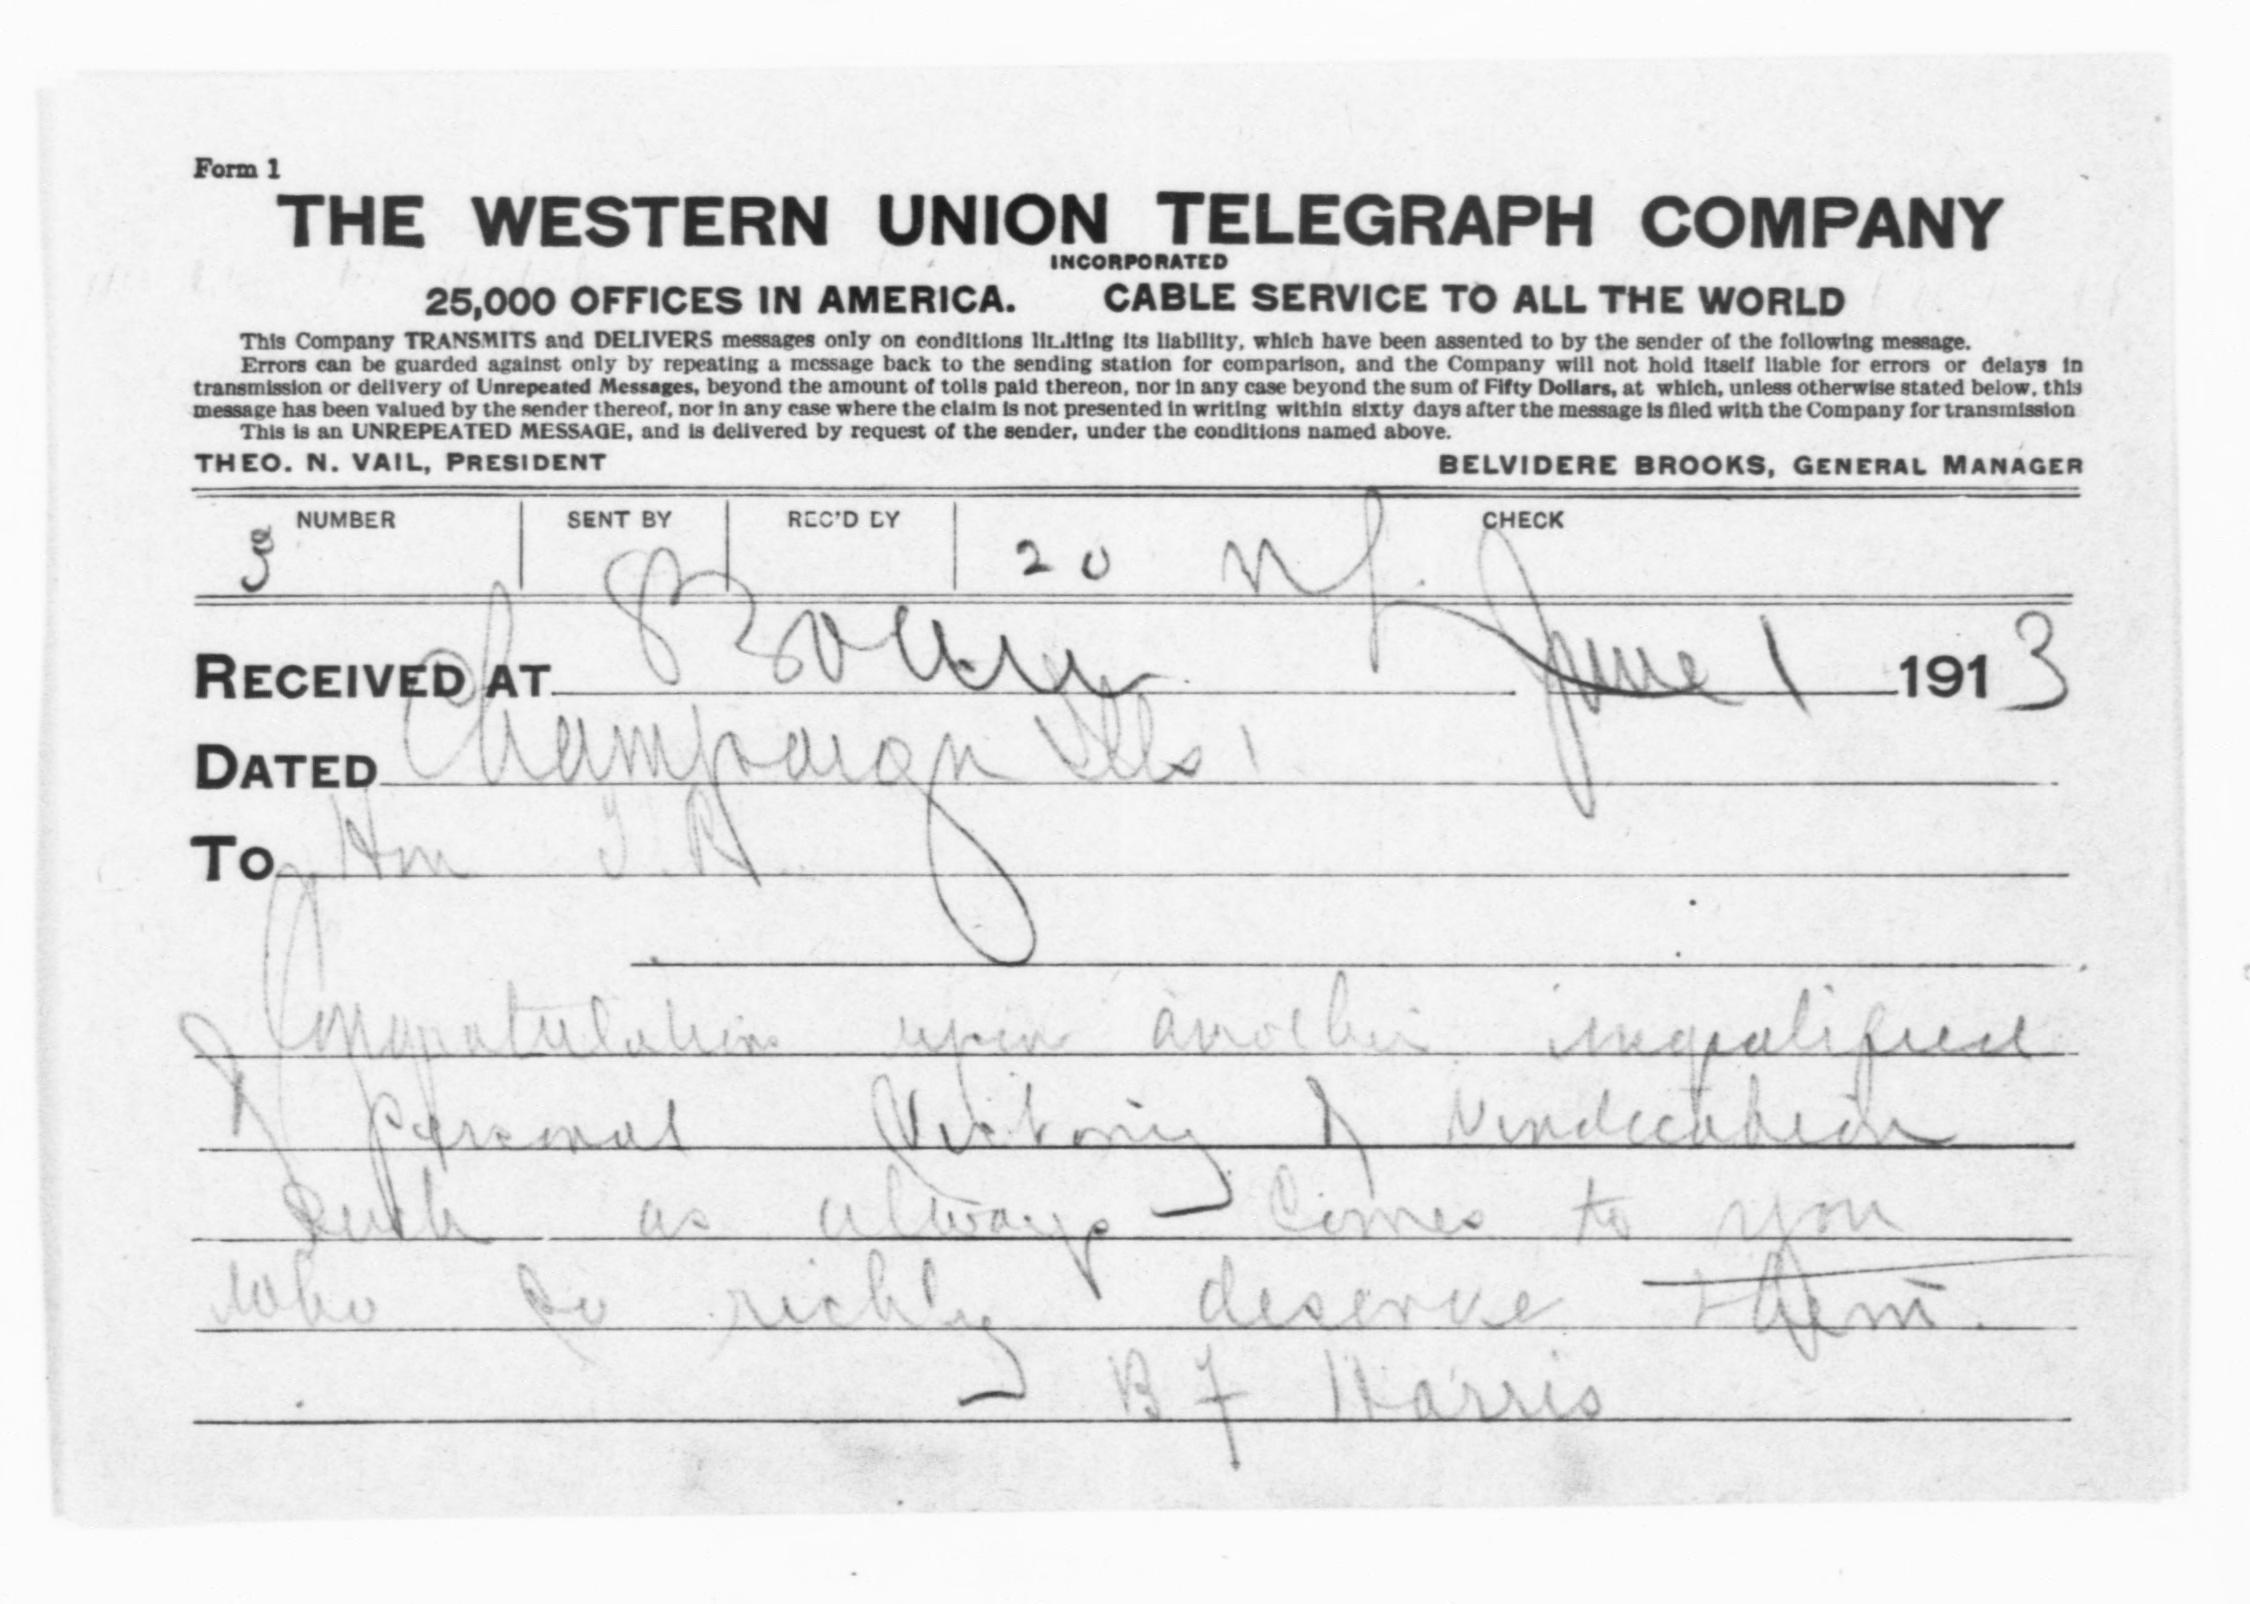 Form 1
THE WESTERN UNION TELEGRAPH COMPANY
INCORPORATED
25,000 OFFICES IN AMERICA. CABLE SERVICE TO ALL THE WORLD
This Company TRANSMITS and DELIVERS messages only on conditions limiting its liability, which have been assented to by the sender of the following message.
Errors can be guarded against only by repeating a message back to the sending station for comparison, and the Company will not hold itself liable for errors or delays in
transmission or delivery of Unrepeated Messages, beyond the amount of tolls paid thereon, nor in any case beyond the sum of Fifty Dollars, at which, unless otherwise stated below, this
message has been valued by the sender thereof, nor in any case where the claim is not presented in writing within sixty days after the message is filed with the Company for transmission
This is an UNREPEATED MESSAGE, and is delivered by request of the sender, under the conditions named above.
THEO. N. VAIL, PRESIDENT BELVIDERE BROOKS, GENERAL MANAGER
NUMBER SENT BY REC'D BY CHECK
20
RECEIVED AT June 1 1913
DATED Champaign Ills 1
To Hon T. R.
Congratulations upon another unqualified
personal Victory & Vindication
Such as always comes to you
who so richly deserve them.
B F Harris